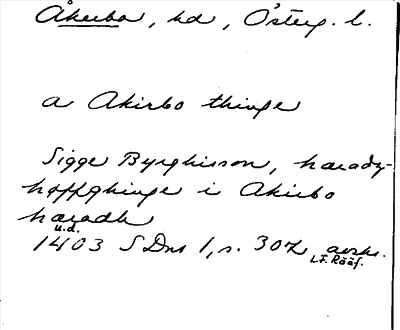 Åkerbo, hd, Österg. l.
a Akirbo thinge
Sigge Byrghisson, haradz-
høffþhinge i Akirbo
haradh
u.d.
1403 SDns 1, s. 302 avskr.
L.F. Rääf.